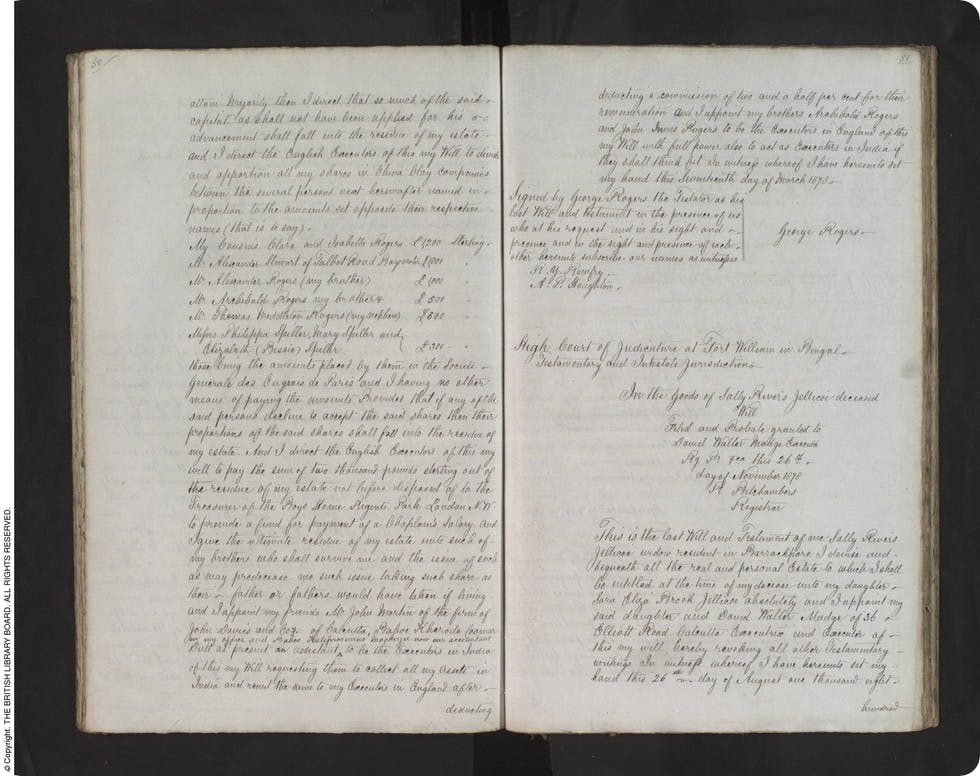 50
attain Majority then I direct that so much of the said
capital as shall not have been applied for his
advancement shall fall into the residue of my estate
and I direct the English Executors of this my Will to divide
and apportion all my shares in China Clay companies
between the several persons next hereinafter named in
proportion to the amounts set opposite their respective
names (that is to say)
My Cousins Clara and Isabella Rogers £1200 Sterling
Mr Alexander Stewart of Talbot Road Bayswater £1000 "
Mr Alexander Rogers (my brother) £1000 "
Mr Archibald Rogers my brother £500 "
Mr Thomas Middleton Rogers (my nephew) £500 "
Misses Philippa Spiller, Mary Spiller and
Elizabeth (Bessie) Spiller £300 "
those being the amounts placed by them in the Societe
Generale des Engrais de Paris and I having no other
means of paying the amounts Provided that if any of the
said persons decline to accept the said shares then their
proportions of the said shares shall fall into the residue of
my estate. And I direct the English Executors of this my
will to pay the sum of two thousand pounds sterling out of
the residue of my estate not before disposed of to the
Treasurer of the Boys Home Regents Park London N.W.
to provide a fund for payment of a Chaplains Salary. And
I give the ultimate residue of my estate unto such of
my brothers who shall survive me and the issue of such
as may predecease me such issue taking such share as
their father or fathers would have taken if living
and I appoint my friends Mr John Martin of the firm of
John Davies and Coy. of Calcutta, Baboo Kherode Coomar
in my office and Baboo now our accountant
Dutt at present an assistant to be the Executors in India
of this my Will requesting them to collect all my assets in
India and remit the same to my Executors in England after
deducting
51
deducting a commission of two and a half per cent for their
remuneration And I appoint my brothers Archibald Rogers
and John Innes Rogers to be the Executors in England of this
my Will with full power also to act as Executors in India if
they shall think fit In witness whereof I have hereunto set
my hand this Seventeenth day of March 1878
Signed by George Rogers the Testator as his
last Will and Testament in the presence of us
who at his request and in his sight and
presence and in the sight and presence of each
other hereunto subscribe our names as witnesses
George Rogers
A. P. Houghton
High Court of Judicature at Fort William in Bengal
Testamentary and Intestate Jurisdiction
In the Goods of Sally Rivers Jellicoe deceased
Will
Filed and Probate granted to
David Walter Madge Executor
this 26th
day of November 1878
R Belchambers
Registrar
This is the last Will and Testament of me Sally Rivers
Jellicoe widow resident in Barrackpore I devise and
bequeath all the real and personal Estate to which I shall
be entitled at the time of my decease unto my daughter
Sara Eliza Brook Jellicoe absolutely and I appoint my
said daughter and David Walter Madge of 36
Elliott Road Calcutta Executrix and Executor of
this my will hereby revoking all other Testamentary
writings In witness whereof I have hereunto set my
hand this 26 day of August one thousand eight
hundred
© Copyright. THE BRITISH LIBRARY BOARD. ALL RIGHTS RESERVED.